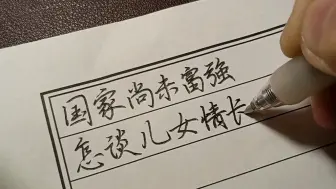 国家尚未富強
怎谈儿女情长